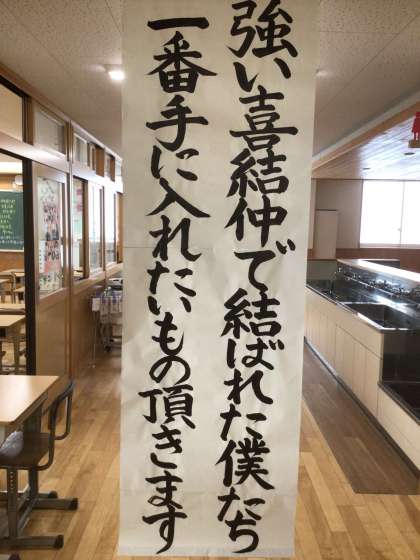 強い喜結仲で結ばれた僕たち
一番手に入れたいもの頂きます